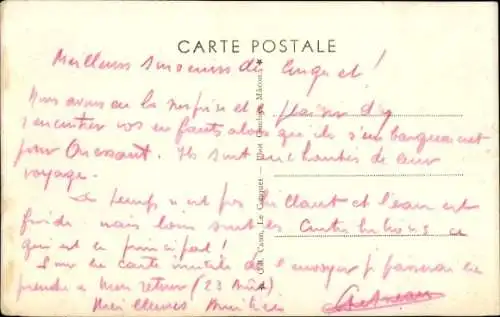 CARTE POSTALE
Meilleurs souvenirs du Conquet !
Nous avons eu la surprise et le plaisir d'y
rencontrer vos enfants alors que ils s'embarquaient
pour Ouessant. Ils sont enchantés de leur
voyage.
Le temps n'est pas brillant et l'eau est
froide mais loin sont les contributions ce
qui est le principal !
Sur la carte inutile de l'envoyer je passerai la
prendre à mon retour (23 Août)
Meilleures Amitiés
Le Conquet
Combier Mâcon